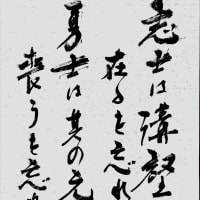 志士は溝壑
在るを忘れ
勇士は其の元
喪うを忘れ